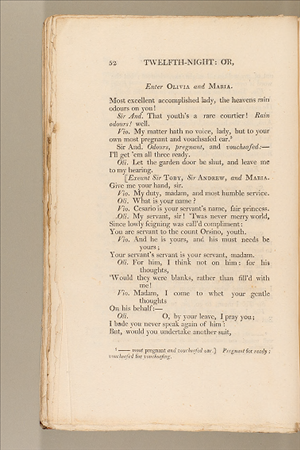 52 TWELFTH-NIGHT: OR,
Enter OLIVIA and MARIA.
Most excellent accomplished lady, the heavens rain
odours on you!
Sir And. That youth's a rare courtier! Rain
odours! well.
Vio. My matter hath no voice, lady, but to your
own most pregnant and vouchsafed ear.¹
Sir And. Odours, pregnant, and vouchsafed:—
I'll get 'em all three ready.
Oli. Let the garden door be shut, and leave me
to my hearing.
[Exeunt Sir TOBY, Sir ANDREW, and MARIA.
Give me your hand, sir.
Vio. My duty, madam, and most humble service.
Oli. What is your name?
Vio. Cesario is your servant's name, fair princess.
Oli. My servant, sir! 'Twas never merry world,
Since lowly feigning was call'd compliment:
You are servant to the count Orsino, youth.
Vio. And he is yours, and his must needs be
yours;
Your servant's servant is your servant, madam.
Oli. For him, I think not on him: for his
thoughts,
'Would they were blanks, rather than fill'd with
me!
Vio. Madam, I come to whet your gentle
thoughts
On his behalf:—
Oli. O, by your leave, I pray you;
I bade you never speak again of him:
But, would you undertake another suit,
¹ —— most pregnant and vouchsafed ear.] Pregnant for ready;
vouchsafed for vouchsafing.